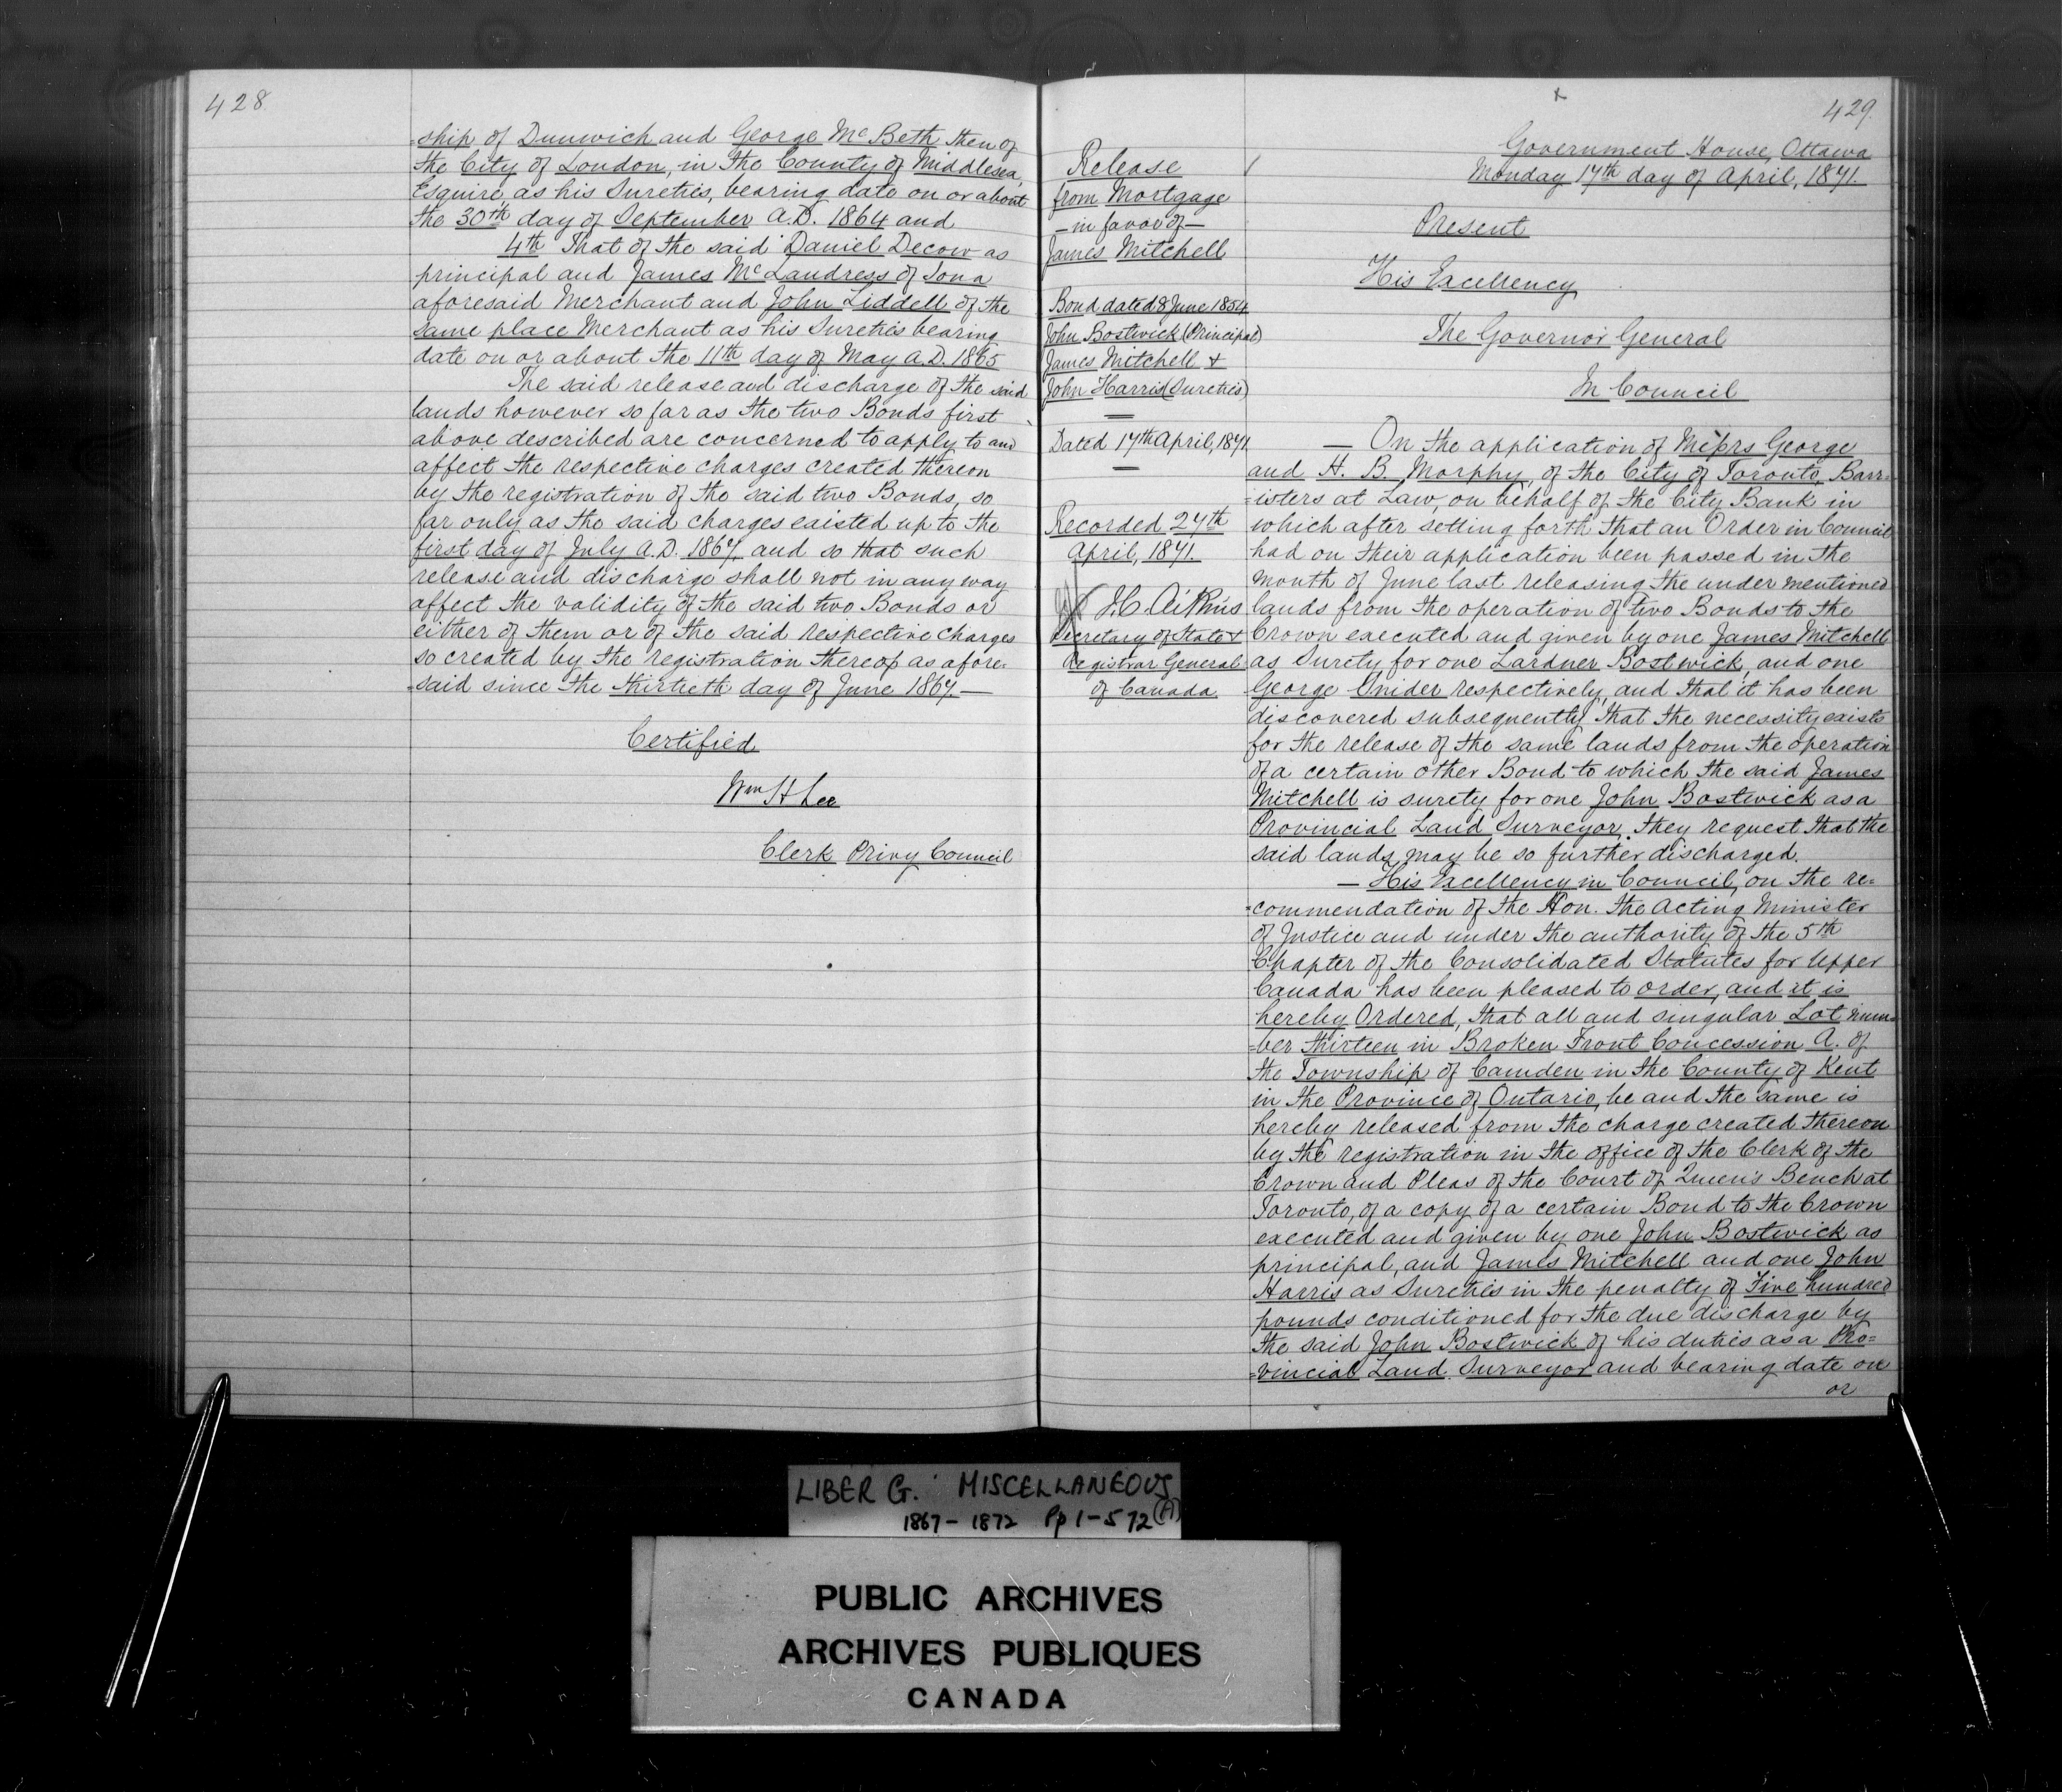 428
=ship of Dunwich and George McBeth then of
the City of London, in the County of Middlesex,
Esquire, as his Sureties, bearing date on or about
the 30th day of September A.D. 1864 and
4th That of the said Daniel Decow as
principal and James McLandress of Iona
aforesaid Merchant and John Liddell of the
same place Merchant as his Sureties bearing
date on or about the 11th day of May A.D. 1865
The said release and discharge of the said
lands however so far as the two Bonds first
above described are concerned to apply to and
affect the respective charges created thereon
by the registration of the said two Bonds, so
far only as the said charges existed up to the
first day of July A.D. 1867. and so that such
release and discharge shall not in any way
affect the validity of the said two Bonds or
either of them or of the said respective charges
so created by the registration thereof as afore-
=said since the thirtieth day of June 1867.—
Certified
Wm H Lee
Clerk Privy Council
429.
Release
from Mortgage
— in favor of —
James Mitchell
Bond dated 8 June 1854
John Bostwick (Principal)
James Mitchell +
John Harris (Sureties)
Dated 17th April, 1871.
Recorded 27th
April, 1871.
J.C. Aikins
Secretary of State +
Registrar General
of Canada
Government House, Ottawa
Monday 17th day of April, 1871.
Present
His Excellency
The Governor General
In Council
— On the application of Messrs George
and H. B. Morphy, of the City of Toronto, Barr=
=isters at Law, on behalf of the City Bank in
which after setting forth that an Order in Council
had on their application been passed in the
month of June last releasing the under mentioned
lands from the operation of two Bonds to the
Crown executed and given by one James Mitchell
as Surety for one Lardner Bostwick, and one
George Snider respectively, and that it has been
discovered subsequently that the necessity exists
for the release of the same lands from the operation
of a certain other Bond to which the said James
Mitchell is surety for one John Bostwick as a
Provincial Land Surveyor, they request that the
said lands may be so further discharged.
— His Excellency in Council, on the re=
=commendation of the Hon. the Acting Minister
of Justice and under the authority of the 5th
Chapter of the Consolidated Statutes for Upper
Canada has been pleased to order, and it is
hereby Ordered, that all and singular Lot num=
=ber thirteen in Broken Front Concession A. of
the Township of Camden in the County of Kent
in the Province of Ontario, be and the same is
hereby released from the charge created thereon
by the registration in the office of the Clerk of the
Crown and Pleas of the Court of Queen's Bench at
Toronto, of a copy of a certain Bond to the Crown
executed and given by one John Bostwick as
principal, and James Mitchell and one John
Harris as Sureties in the penalty of Five hundred
pounds conditioned for the due discharge by
the said John Bostwick of his duties as a Pro=
=vincial Land Surveyor and bearing date on
or
LIBER G. MISCELLANEOUS
1867 - 1872 Pp 1 - 572 (A)
PUBLIC ARCHIVES
ARCHIVES PUBLIQUES
CANADA